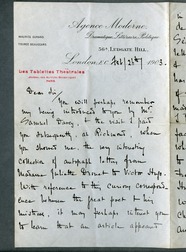 Agence Moderne,
Dramatique, Littéraire, Politique
56A, LUDGATE HILL,
London, E.C. Feby 28th 1903.
Les Tablettes Théatrales
PARIS
Dear Sir,
You will perhaps remember
my being introduced to you by Mr
Samuel Davey, & the visit I paid
you subsequently, at Richmond, when
you showed me the very interesting
collection of autograph letters from
Madame Juliette Drouet to Victor Hugo.
With reference to the curious correspond-
ence between the great poet & his
mistress, it may perhaps interest you
to learn that an article appeared